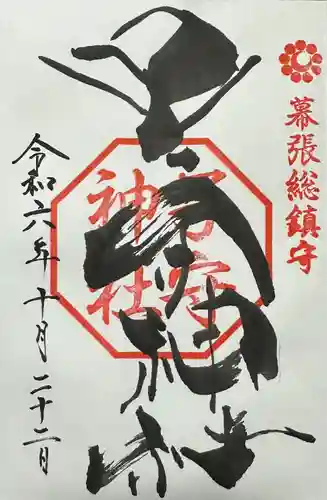 幕張総鎮守
子守神社
子守
神社
令和六年十月二十二日